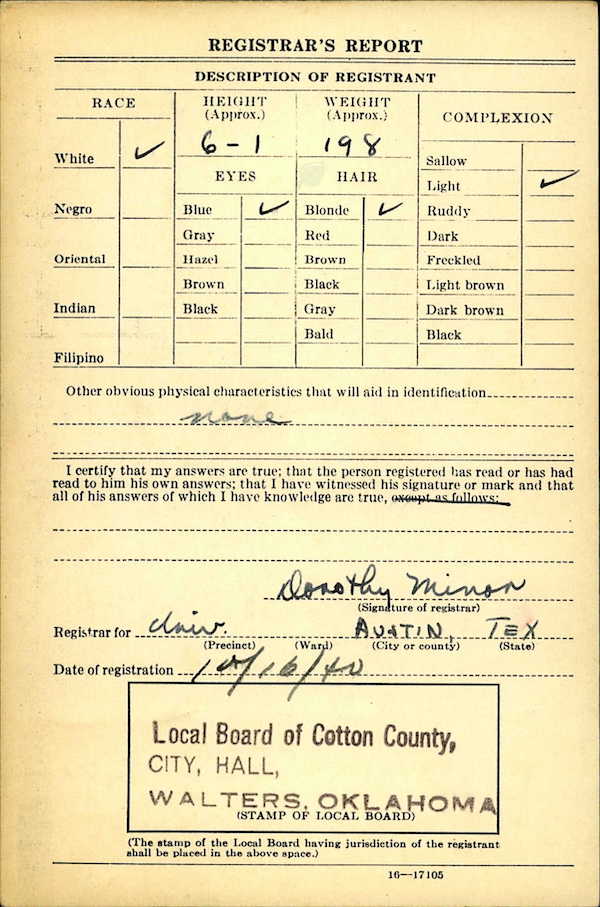 REGISTRAR'S REPORT
DESCRIPTION OF REGISTRANT
RACE
HEIGHT
(Approx.)
WEIGHT
(Approx.)
COMPLEXION
6-1
198
White ✓
Negro
Oriental
Indian
Filipino
EYES
Blue ✓
Gray
Hazel
Brown
Black
HAIR
Blonde ✓
Red
Brown
Black
Gray
Bald
Sallow
Light ✓
Ruddy
Dark
Freckled
Light brown
Dark brown
Black
Other obvious physical characteristics that will aid in identification
none
I certify that my answers are true; that the person registered has read or has had
read to him his own answers; that I have witnessed his signature or mark and that
all of his answers of which I have knowledge are true, except as follows:
Dorothy Minor
(Signature of registrar)
Registrar for Univ. AUSTIN, TEX
(Precinct) (Ward) (City or county) (State)
Date of registration 10/16/40
Local Board of Cotton County,
CITY, HALL,
WALTERS, OKLAHOMA
(STAMP OF LOCAL BOARD)
(The stamp of the Local Board having jurisdiction of the registrant
shall be placed in the above space.)
16—17105